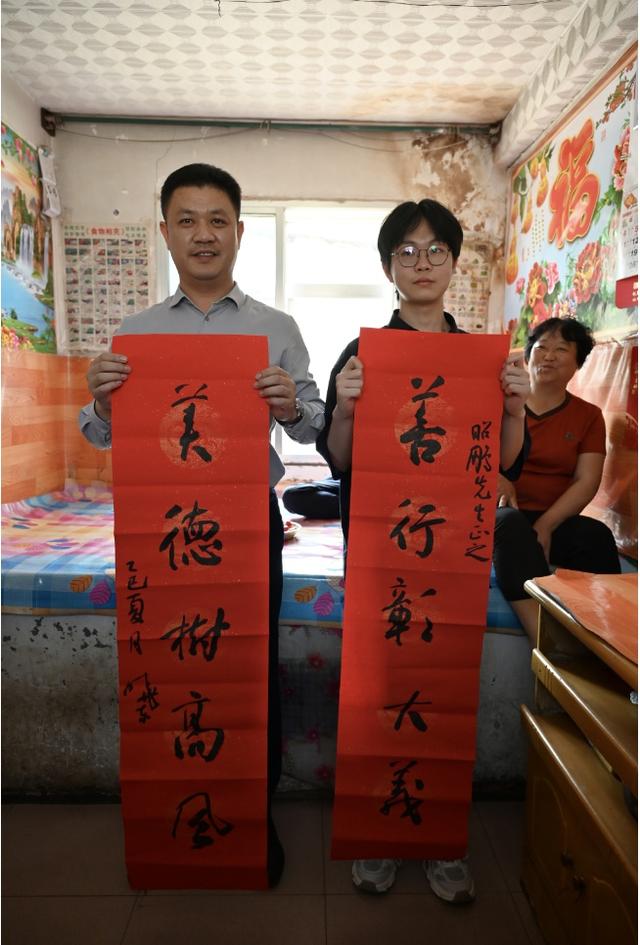 善行彰大义
昭鹏先生正之
美德树高风
乙巳夏月
福